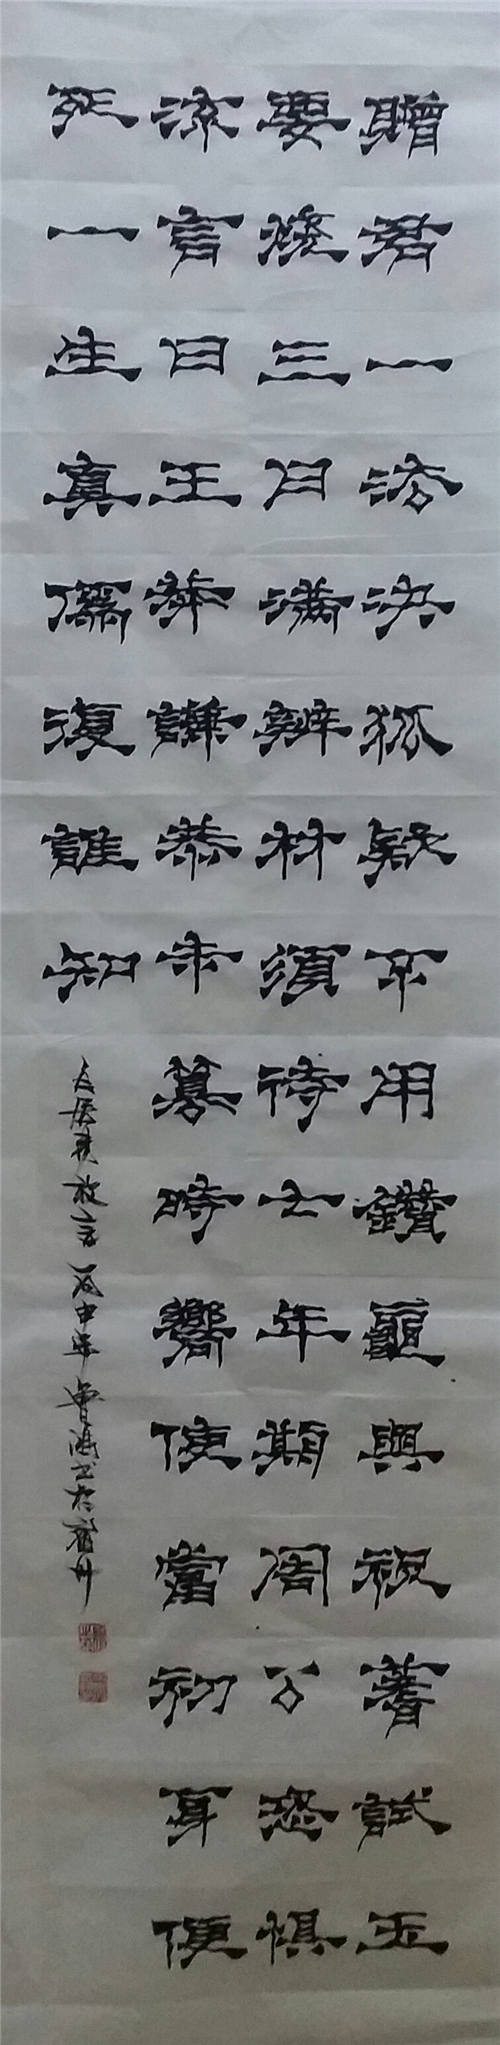 贈君一法決狐疑不用鑽龜與祝蓍試玉
要燒三日滿辨材須待七年期周公恐懼
流言日王莽謙恭未篡時嚮使當初身便
死一生真僞復誰知
白居易放言 丙申年 书於宿州